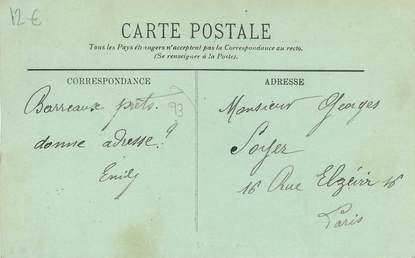 12 €
CARTE POSTALE
Tous les Pays étrangers n'acceptent pas la Correspondance au recto.
(Se renseigner à la Poste).
CORRESPONDANCE
Barreaux prêts.
93
donne adresse?
Emily
ADRESSE
Monsieur Georges
Soyer
16 Rue Elzévir 16
Paris